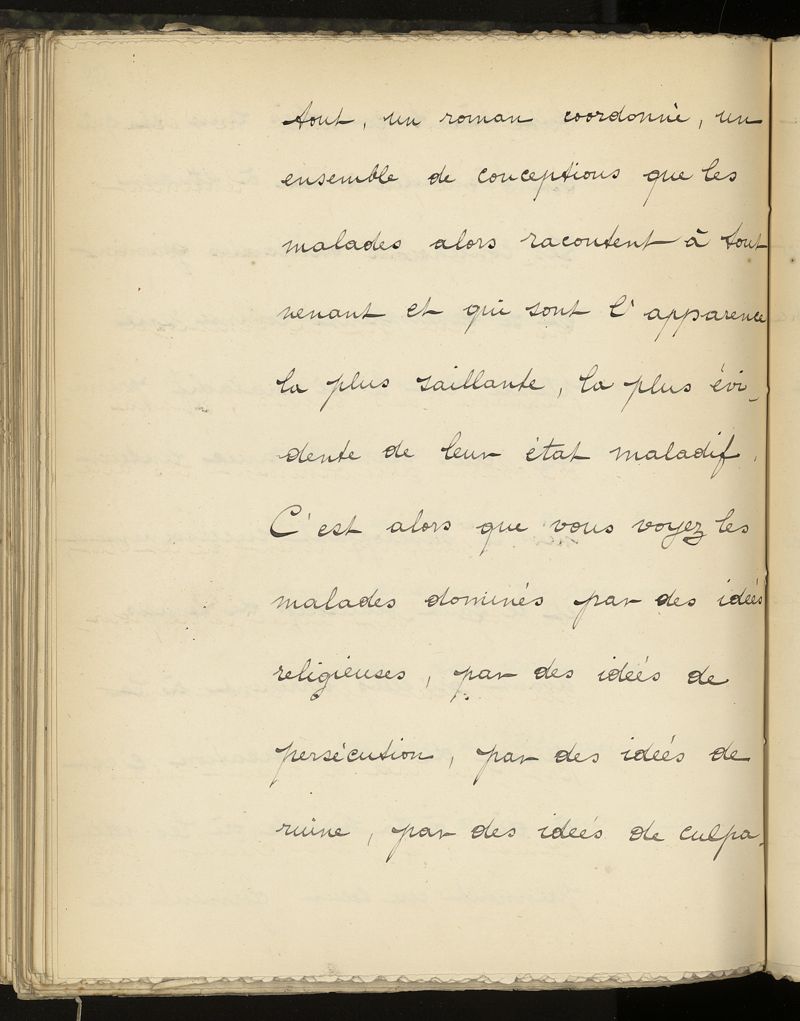 tout, un roman coordonné, un
ensemble de conceptions que les
malades alors racontent à tout
venant et qui sont l'apparence
la plus saillante, la plus évi-
dente de leur état maladif.
C'est alors que vous voyez les
malades dominés par des idées
religieuses, par des idées de
persécution, par des idées de
ruine, par des idées de culpa-